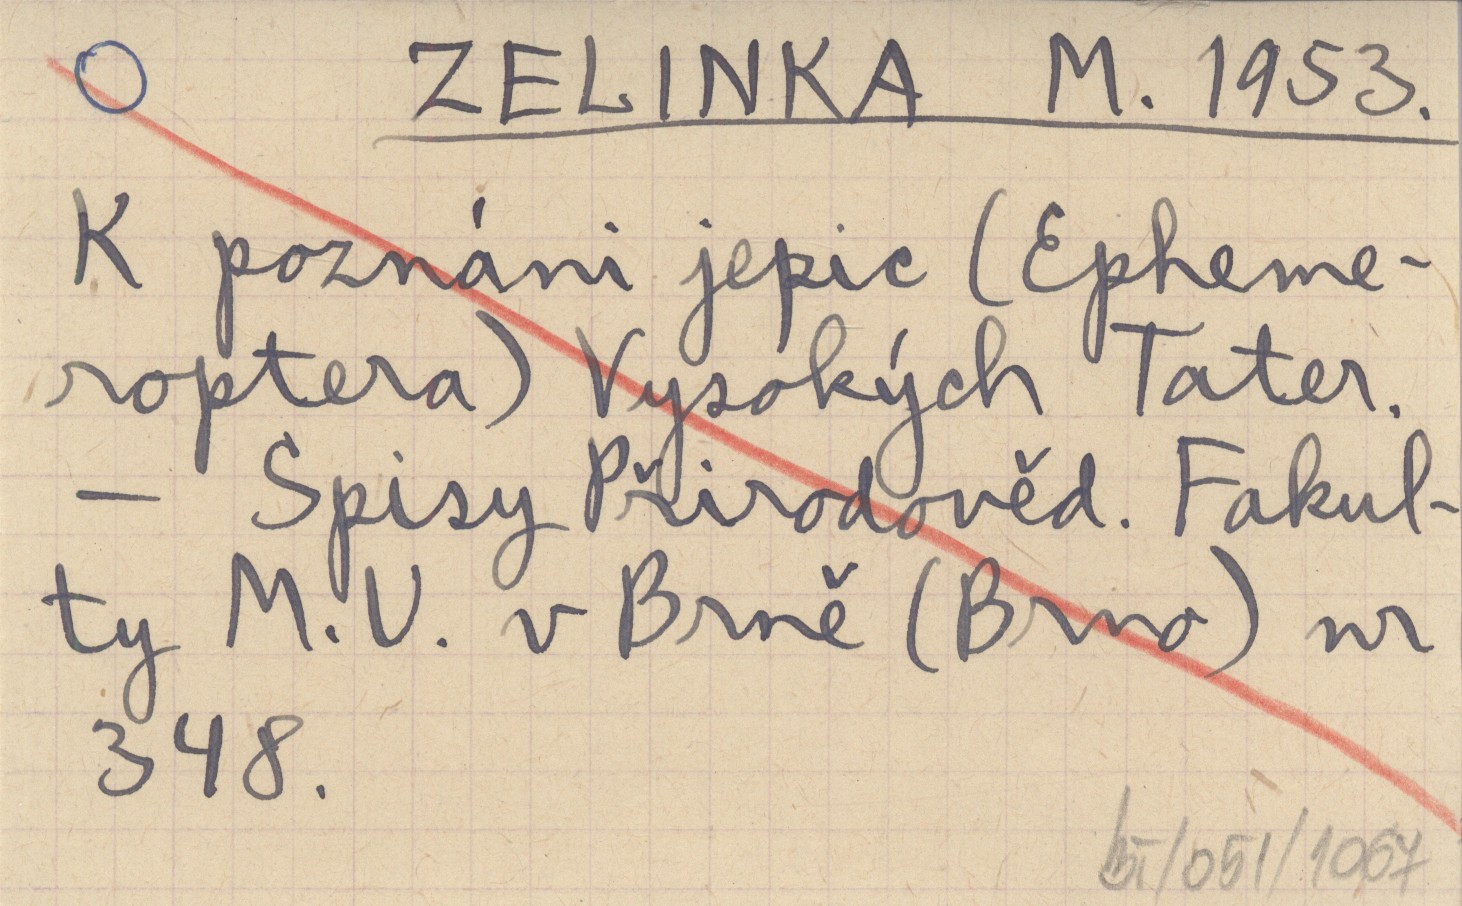 ZELINKA M. 1953.
K poznáni jepic (Epheme-
roptera) Vysokých Tater.
— Spisy Přirodověd. Fakul-
ty M.U. v Brně (Brno) nr
348.
/051/1067